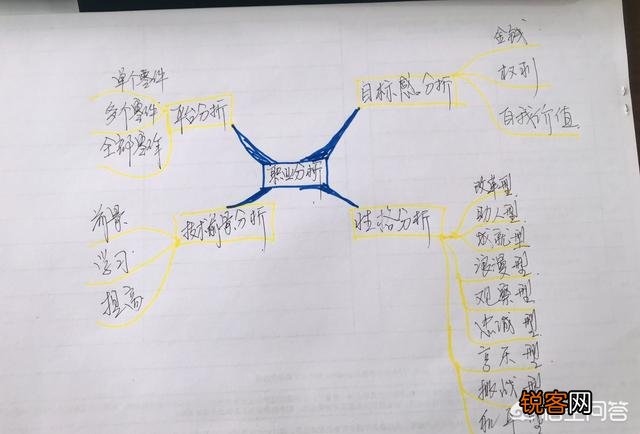 职业分析
平台分析
单个零件
多个零件
全部零件
目标感分析
金钱
权利
自我价值
技术前景分析
前景
学习
提高
性格分析
改革型
助人型
成就型
浪漫型
观察型
忠诚型
享乐型
挑战型
和平型
锐客网
悟空问答